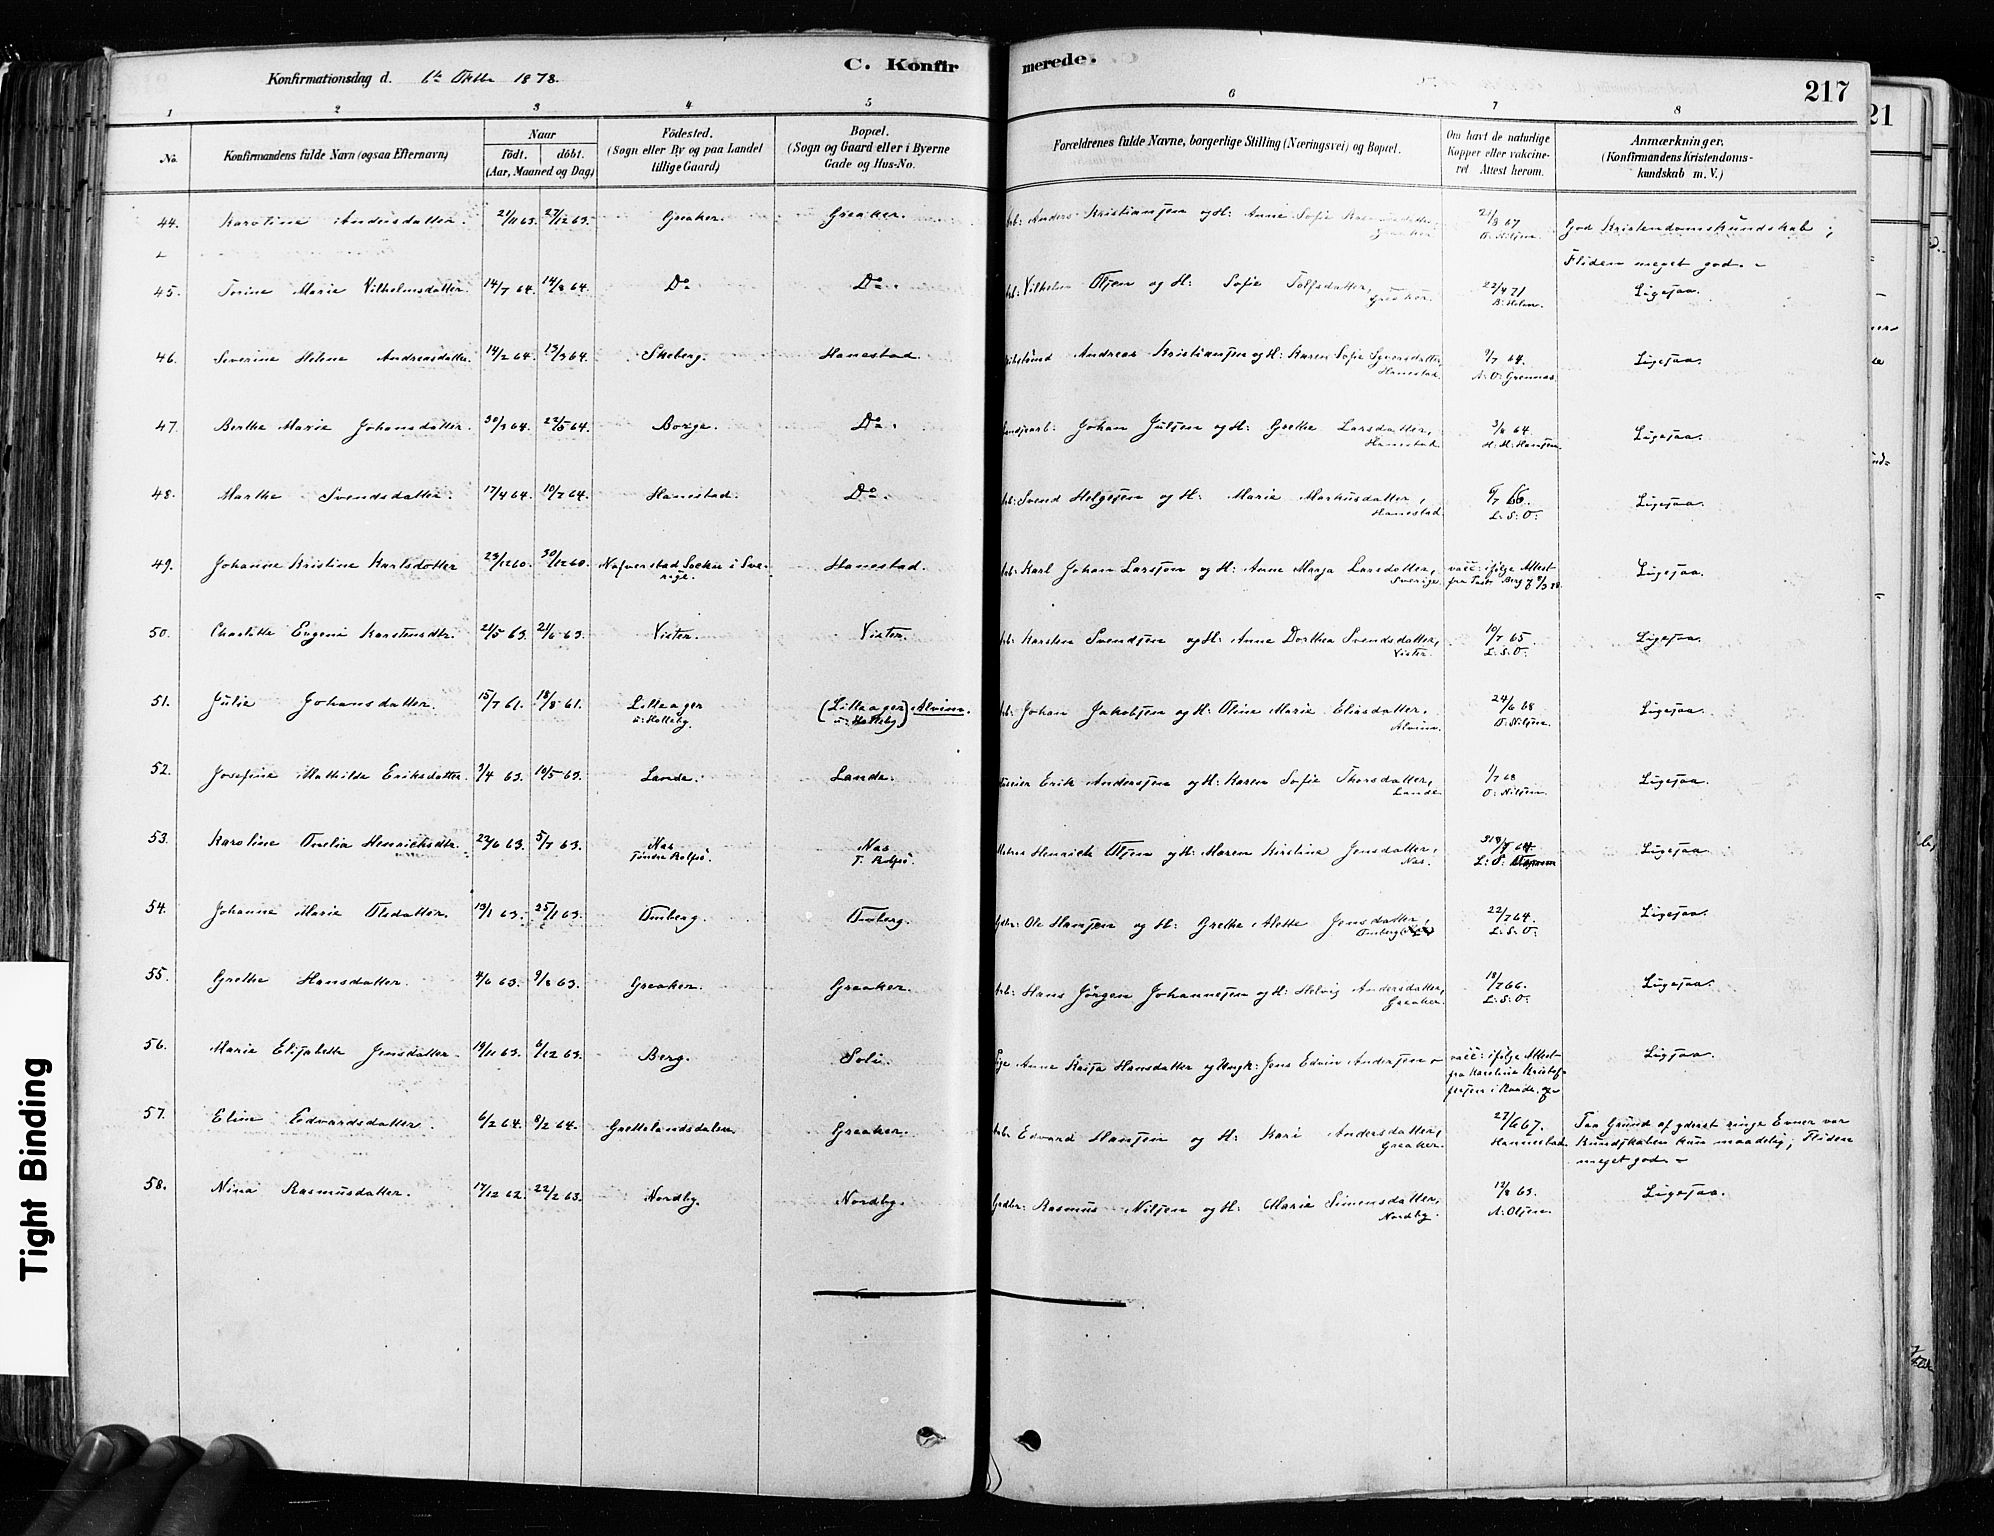 C. Konfirmerede.
217
21
Konfirmationsdag d. 6te Oktbr 1878.
1 2 3 4 5 6 7 8
No.
Konfirmandens fulde Navn (ogsaa Efternavn)
Naar
födt. döbt.
(Aar, Maaned og Dag)
Födested.
(Sogn eller By og paa Landet
tillige Gaard)
Bopæl.
(Sogn og Gaard eller i Byerne
Gade og Hus-No.
Forældrenes fulde Navne, borgerlige Stilling (Næringsvei) og Bopæl.
Om havt de naturlige
Kopper eller vakcine-
ret Attest herom.
Anmærkninger.
(Konfirmandens Kristendoms-
kundskab m. V.)
44. Karoline Andersdatter. 2/11 63. 27/12 63. Greaker. Greaker. Arb: Anders Kristiansen og H: Anne Sofie Greaker 67 O: Nilsen God Kristendomskundskab;
Fliden meget god.
45. Torine Marie Vilhelmsdatter. 14/7 64. 14/8 64. Do Do. Arb: Vilhelm Olsen og H: Sofie Tolfsdatter, Greaker. 22/4 71 B: Holm Ligesaa.
46. Severine Helene Andreasdatter. 14/2 64. 13/3 64. Skeberg. Hanestad. Andreas Kristiansen og H: Karen Sofie Syversdatter, Hanestad. 9/7 64. A: O: Grennas. Ligesaa.
47. Berthe Marie Johansdatter. 30/3 64. 22/5 64. Borge. Do. Johan Julsen og H: Grethe Larsdatter, Hanestad 3/8 64. H: H: Hansen Ligesaa.
48. Marthe Svendsdatter. 17/4 64. 10/7 64. Hanestad. Do. Arb: Svend Helgesen og H: Marie Markusdatter, Hanestad 6/7 66. L: S: O: Ligesaa.
49. Johanne Kristine Karlsdotter 23/12 60. 30/12 60. Nafverstad Socken i Sve-
rige. Hanestad. Arb: Karl Johan Larsson og H: Anne Marja Larsdotter, Sverige. vacc: ifölge Attest
fra Berg Ligesaa.
50. Charlotte Eugeni Karstensdtr. 21/5 63. 21/6 63. Vister. Vister. Arb: Karsten Svendsen og H: Anne Dorthea Svendsdatter, Vister. 10/7 65 L: S: O: Ligesaa.
51. Julie Johansdatter. 15/7 61. 18/8 61. Lilleager
u: Holleby. (Lilleager
u: Holleby) Alvim. Arb: Johan Jakobsen og H: Oline Marie Eliasdatter, Alvim. 24/6 68 O: Nilsen. Ligesaa.
52. Josefine Mathilde Eriksdatter. 3/4 63. 10/5 63. Lande. Lande. Erik Andersen og H: Karen Sofie Thorsdatter, Lande 1/7 68 O: Nilsen. Ligesaa.
53. Karoline Omelia Henriksdtr. 22/6 63. 5/7 63. Nas
Tondre Rolfsö. Nas
T. Rolfsö. Matros Henrik Olsen og H: Maren Kirstine Jensdatter, Nas. 64 L: S: Ligesaa.
54. Johanne Marie Olsdatter. 13/1 63. 25/1 63. Omberg. Omberg. Gdbr: Ole Hansen og H: Grethe Alette Jensdatter, Omberg 22/7 64. L: S: O: Ligesaa.
55. Grethe Hansdatter. 4/6 63. 9/8 63. Greaker. Greaker. Arb: Hans Jörgen Johannesen og H: Helvig Andersdatter, Greaker. 18/7 66. L: S: O: Ligesaa.
56. Marie Elisabette Jensdatter. 19/11 63. 6/12 63. Berg. Soli. Pige Anne Kaisa Hansdatter og Ungk: Jens Edvin Andersen vacc: ifölge Attest
fra Karoline Kristof-
fersen i Raade. Ligsaa.
57. Eline Edvardsdatter. 6/2 64. 8/2 64. Grettelandsdalen Greaker. Arb: Edvard Hansen og H: Kari Andersdatter, Greaker. 27/6 67. Hannestad Paa Grund af yderst ringe Evner var
Kundskaben kun maadelig; Fliden
meget god.
58. Nina Rasmusdatter. 17/12 62. 22/2 63. Nordby. Nordby. Gdbr: Rasmus Nilsen og H: Marie Simensdatter, Nordby. 12/8 63. A: Olsen. Ligesaa.
Tight Binding